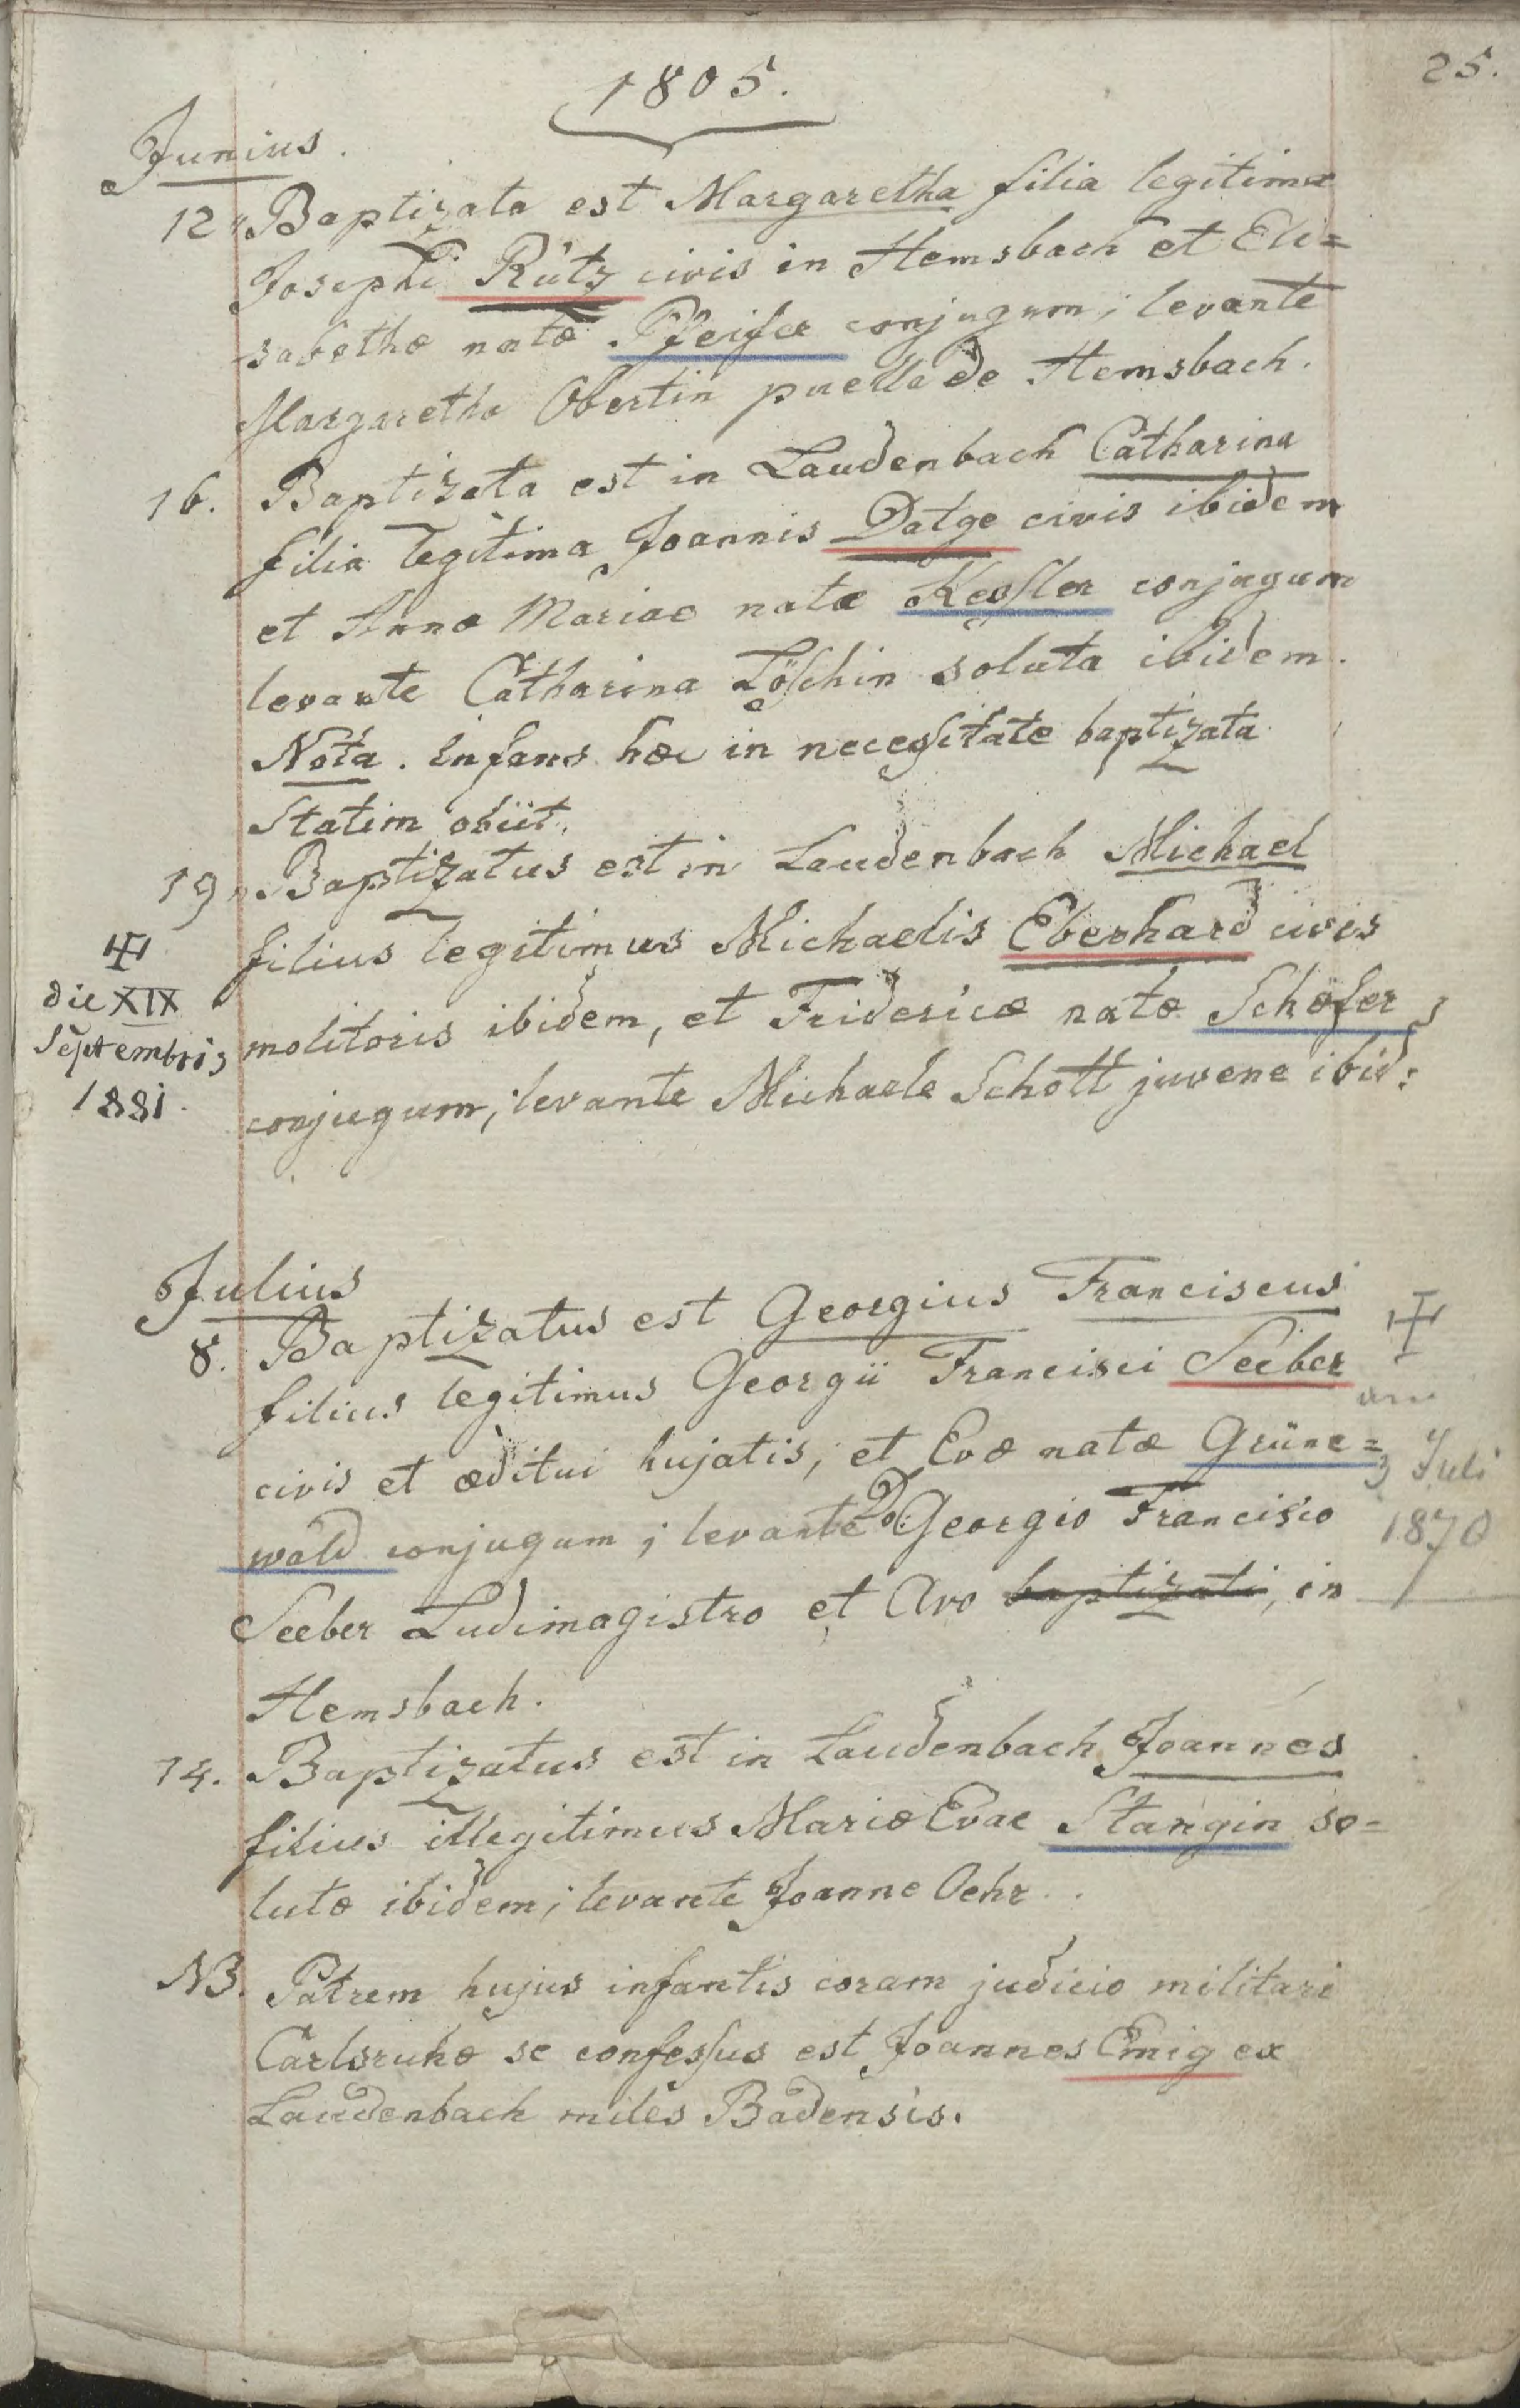 25.
1805.
Junius.
12 Baptizata est Margaretha filia legitima
Josephi Rütz civis in Hemsbach et Eli=
sabethæ natæ Pfeifer conjugum; levante
Margaretha Obertin puella de Hemsbach.
16. Baptizata est in Laudenbach Catharina
filia legitima Joannis Datge civis ibidem
et Annæ Mariae natæ Kessler conjugum
levante Catharina Löschin soluta ibidem.
Nota. Infans hæc in necessitate baptizata
statim obiit.
19. Baptizatus est in Laudenbach Michael
filius legitimus Michaelis Eberhard civis
molitoris ibidem, et Fridericæ natæ Schäfer
conjugum; levante Michaele Schott juvene ibid:
die XIX
Septembris
1881.
Julius
8. Baptizatus est Georgius Franciscus
filius legitimus Georgii Francisci Seeber
civis et æditui hujatis, et Evæ natæ Grüne=
wald conjugum; levante Do: Georgio Francisco
Seeber Ludimagistro et Avo baptizati, in
Hemsbach.
3 Juli
1870
14. Baptizatus est in Laudenbach Joannes
filius illegitimus Mariæ Evae Stangin so=
lutæ ibidem; levante Joanne Oehr.
NB. Patrem hujus infantis coram judicio militari
Carlsruhæ se confessus est Joannes Emig ex
Laudenbach miles Badensis.